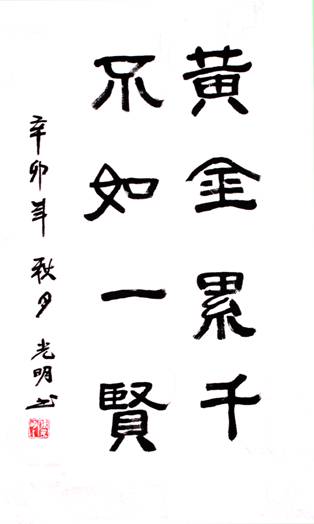 黄金累千
不如一賢
辛卯年秋月光明书